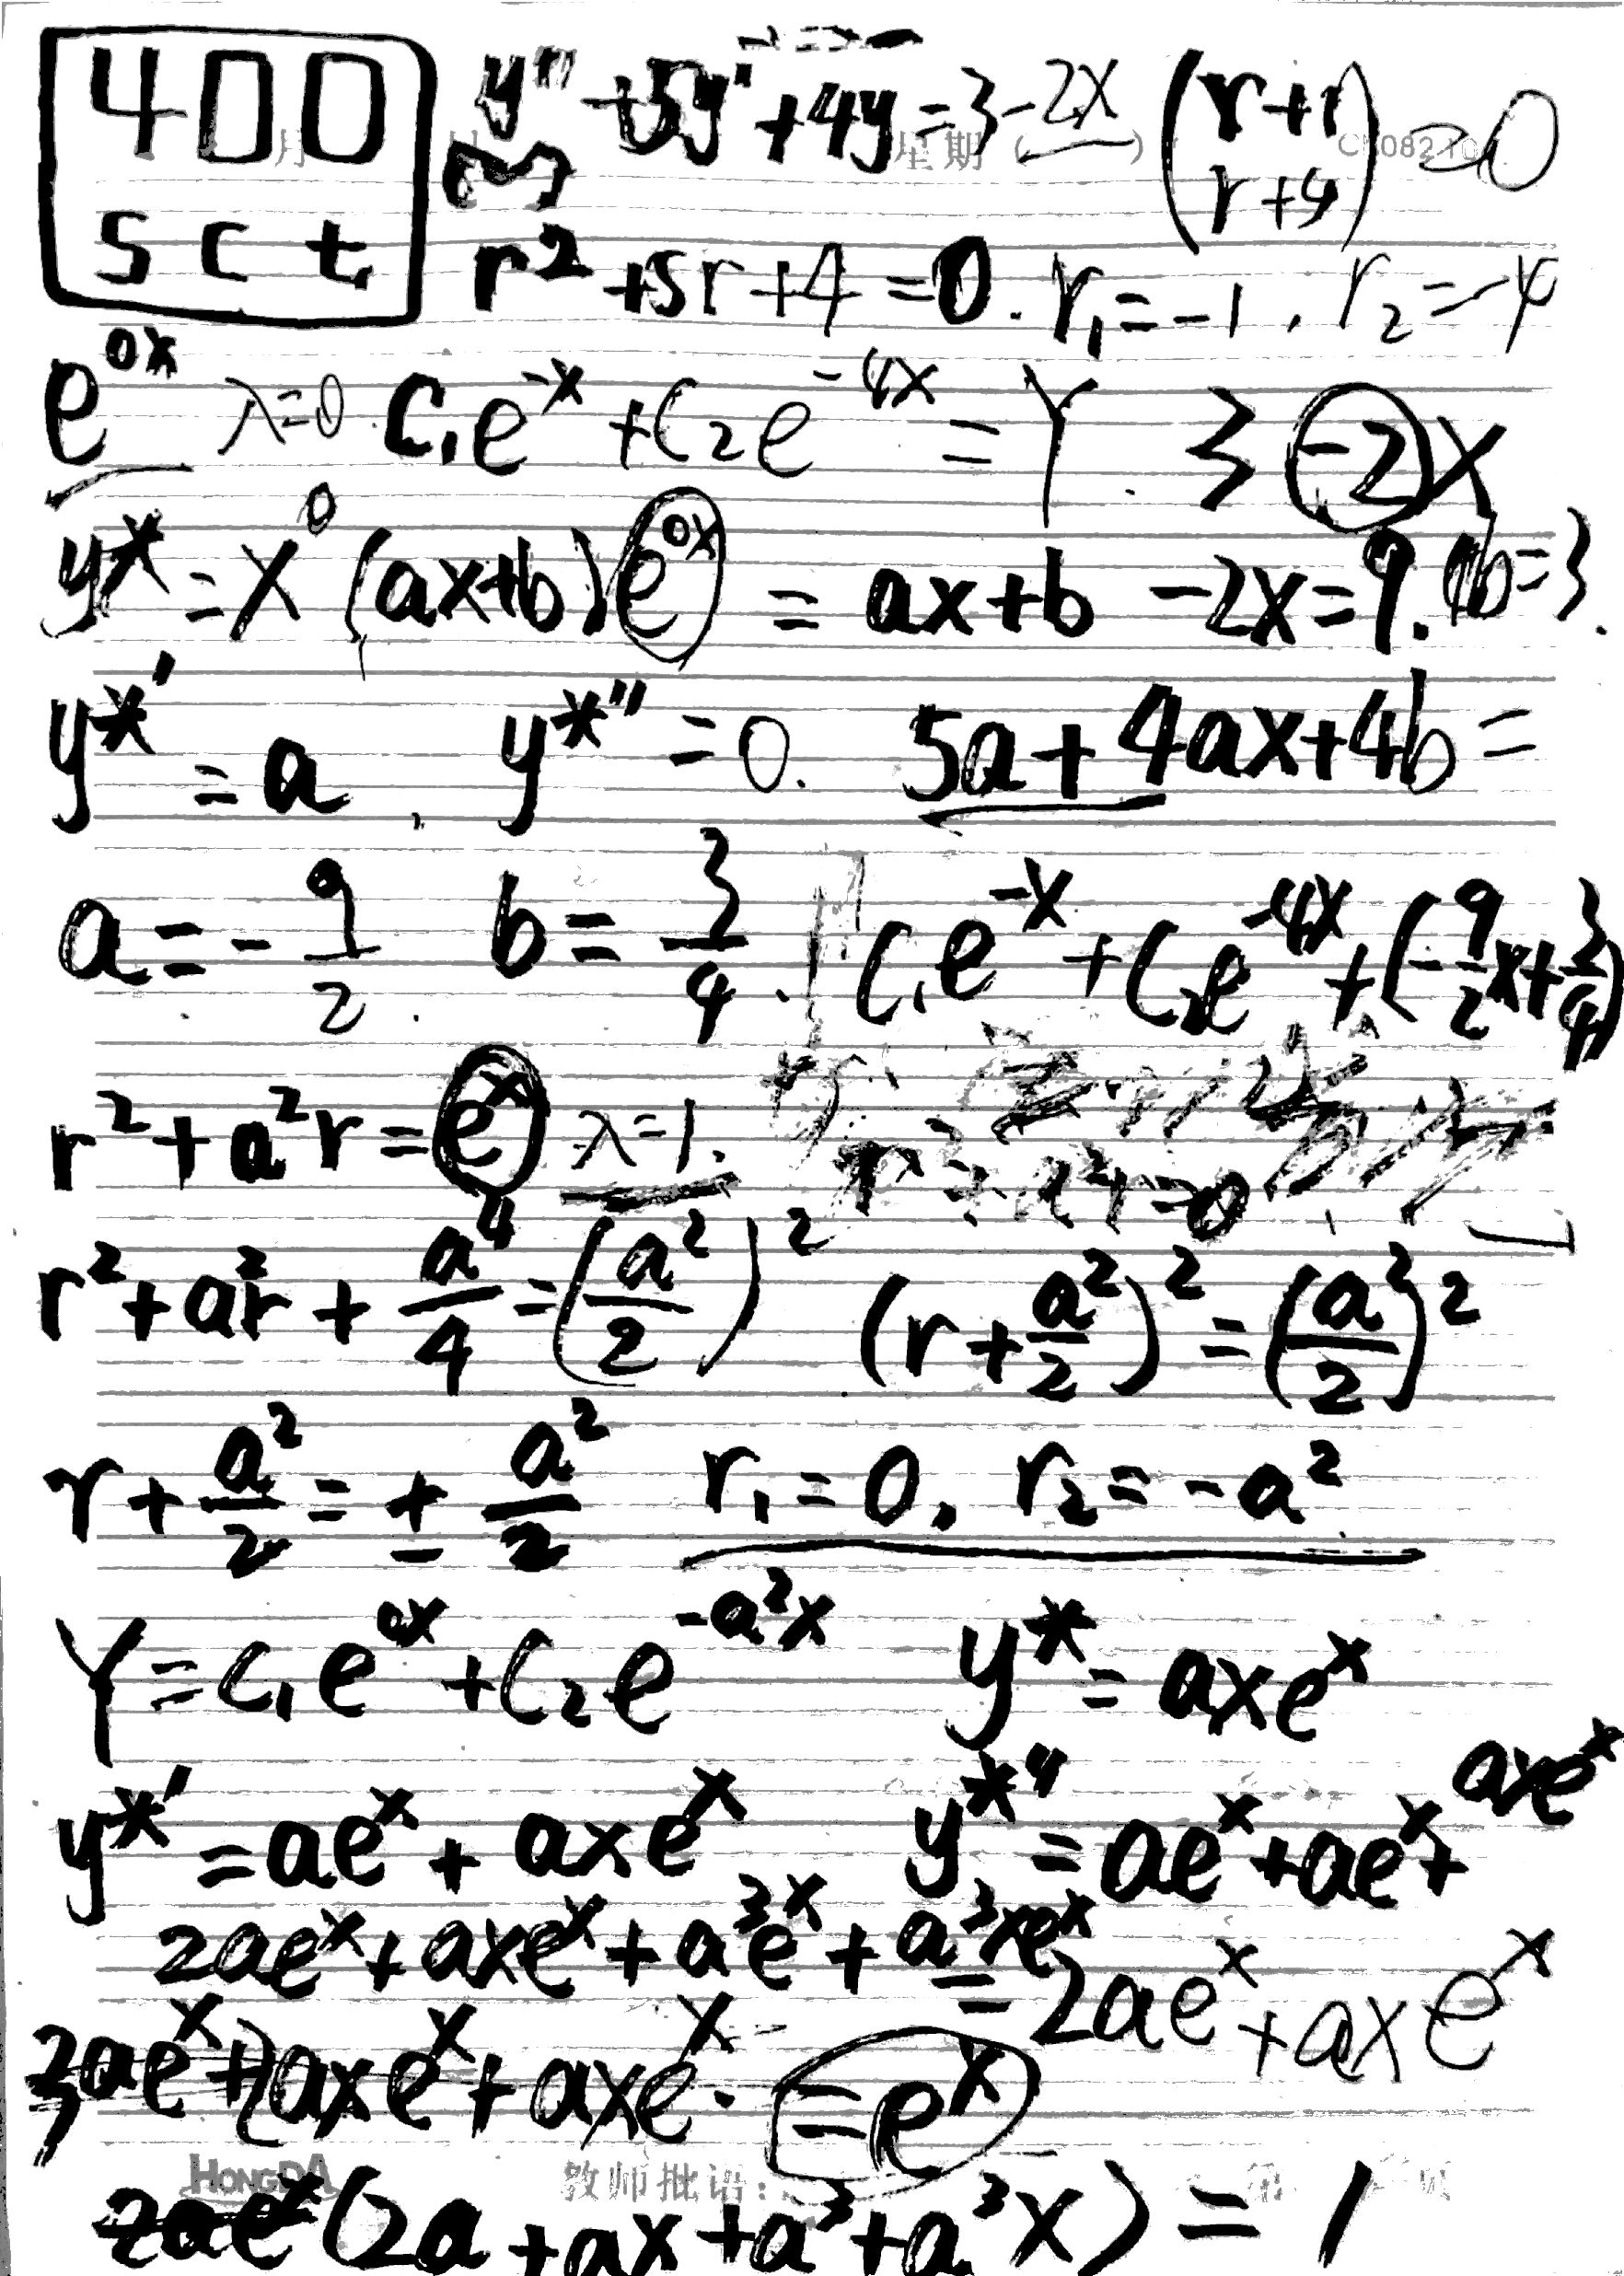 400
sct
y'' + 5y' + 4y = 3 - 2x (r+1 r+4) = 0
星期 ( )
r² + 5r + 4 = 0. r₁ = -1, r₂ = -4
e^{0x} λ=0 C₁e^{-x} + C₂e^{-4x} = Y 3 -2x
y* = x⁰(ax+b)e^{0x} = ax+b -2x=9. 4b=3.
y*' = a, y*'' = 0. 5a + 4ax + 4b =
a = -9/2. b = 3/4. C₁e^{-x} + C₂e^{-4x} + (-9/2x + 3/4)
r² + a²r = e^x λ=1.
r² + a²r + a⁴/4 = (a²/2)² (r + a²/2)² = (a²/2)²
r + a²/2 = ± a²/2 r₁ = 0, r₂ = -a²
Y = C₁e^{0x} + C₂e^{-a²x} y* = axe^x
y*' = ae^x + axe^x y*'' = ae^x + ae^x + axe^x
2ae^x + axe^x + a³e^x + a³xe^x
= 2ae^x + axe^x
3ae^x + 2axe^x + axe^x. = e^x
HONGDA 教师批语:
2ae^x (2a + ax + a³ + a³x) = 1